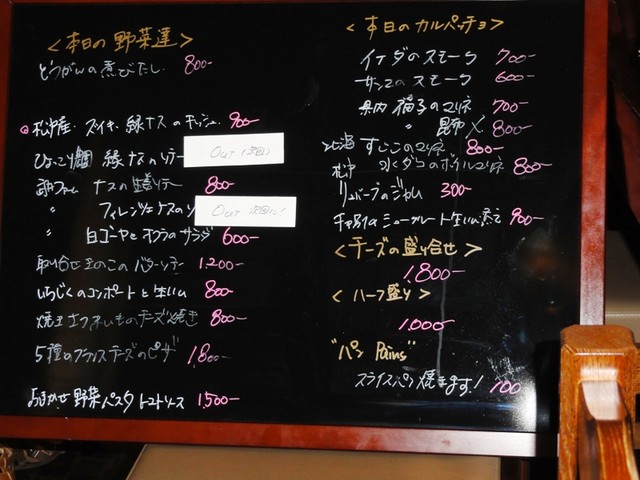 ＜本日の野菜達＞
とうがんの煮びたし 800-
ズイキ、緑ナスのキッシュ 900-
緑ナスのソテー Out (次回)
ナスの ソテー 800-
〃 フィレンツェナスのソ Out 次回に!
〃 白ゴーヤとオクラのサラダ 600-
取り合せ きのこのバターソテー 1,200-
いちじくのコンポートと生ハム 800-
焼き さつまいものチーズ焼き 800-
5種のフランスチーズのピザ 1,800-
おまかせ野菜パスタ トマトソース 1,500-
＜本日のカルパッチョ＞
のスモーク 700-
サンマのスモーク 600-
県内 マリネ 700-
〃 昆布〆 800-
すじこのマリネ 800-
水ダコのボイルマリネ 800-
リュバーブのジャム 300-
シュークルート 生ハム 900-
＜チーズの盛り合せ＞
1,800-
＜ハーフ盛り＞
1,000-
"パン Pains"
スライスパン焼きます! 100